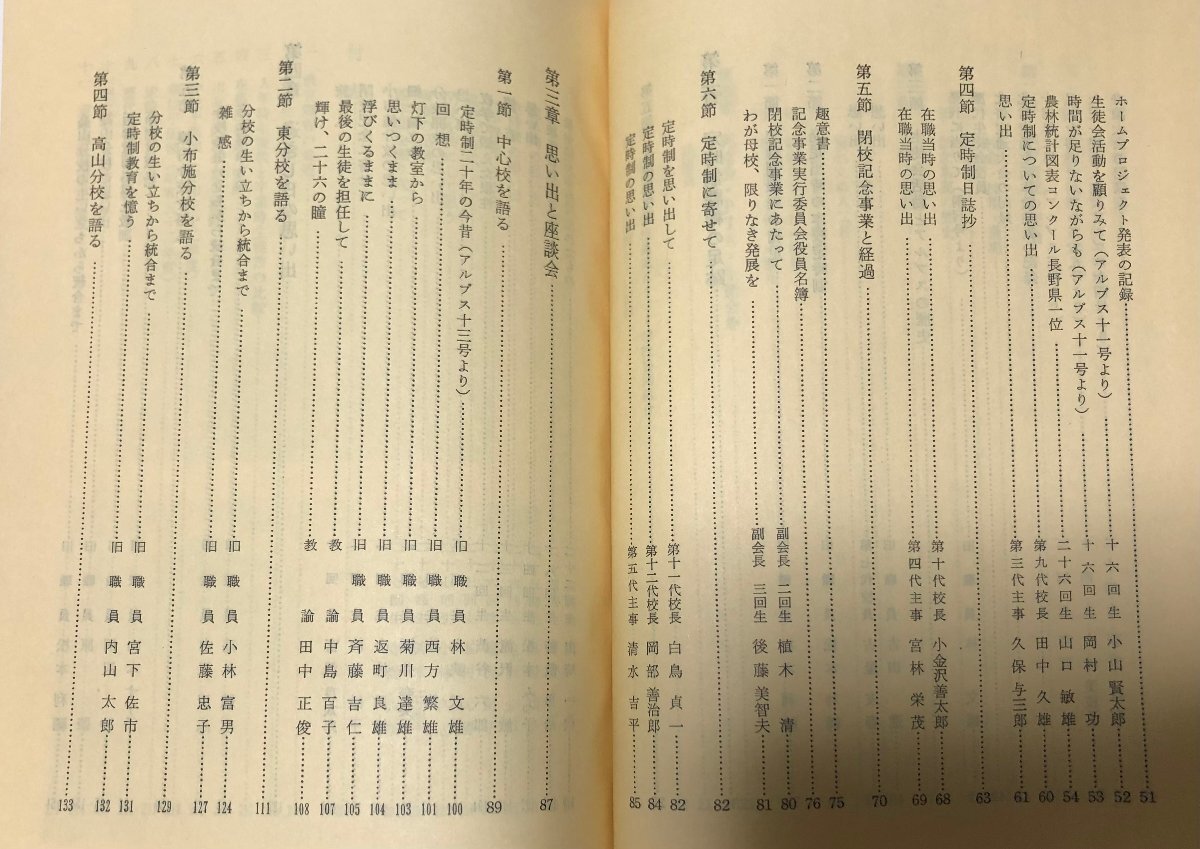 ホームプロジェクト発表の記録……51
生徒会活動を顧りみて（アルプス十一号より）……十六回生 小山賢太郎……52
時間が足りないながらも（アルプス十一号より）……十六回生 岡村 功……53
農林統計図表コンクール長野県一位……二十六回生 山口敏雄……54
定時制についての思い出……第九代校長 田中久雄……60
思い出……第三代主事 久保与三郎……61
第四節 定時制日誌抄……63
在職当時の思い出……第十代校長 小金沢善太郎……68
在職当時の思い出……第四代主事 宮林栄茂……69
第五節 閉校記念事業と経過……70
趣意書……75
記念事業実行委員会役員名簿……76
閉校記念事業にあたって……副会長 二回生 植木 清……80
わが母校、限りなき発展を……副会長 三回生 後藤美智夫……81
第六節 定時制に寄せて……82
定時制を思い出して……第十一代校長 白鳥貞一……82
定時制の思い出……第十二代校長 岡部善治郎……84
定時制の思い出……第五代主事 清水吉平……85
第三章 思い出と座談会……87
第一節 中心校を語る……89
定時制二十年の今昔（アルプス十三号より）……旧職員 林 文雄……100
回想……旧職員 西方繁雄……101
灯下の教室から……旧職員 菊川達雄……103
思いつくまま……旧職員 返町良雄……104
浮びくるままに……旧職員 斉藤吉仁……105
最後の生徒を担任して……教諭 中島百子……107
輝け、二十六の瞳……教諭 田中正俊……108
第二節 東分校を語る……111
分校の生い立ちから統合まで……旧職員 小林富男……124
雑感……旧職員 佐藤忠子……127
第三節 小布施分校を語る……129
分校の生い立ちから統合まで……旧職員 宮下佐市……131
定時制教育を憶う……旧職員 内山太郎……132
第四節 高山分校を語る……133